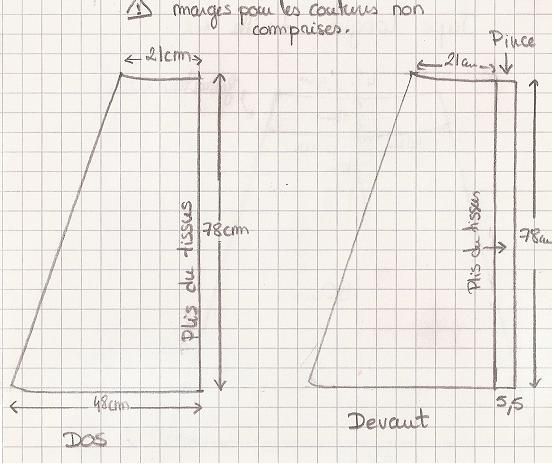 ⚠ marges pour les coutures non
comprises.
21cm
Plis du tissus
78cm
48cm
DOS
Pince
21cm
Plis du tissus
78cm
5,5
Devant